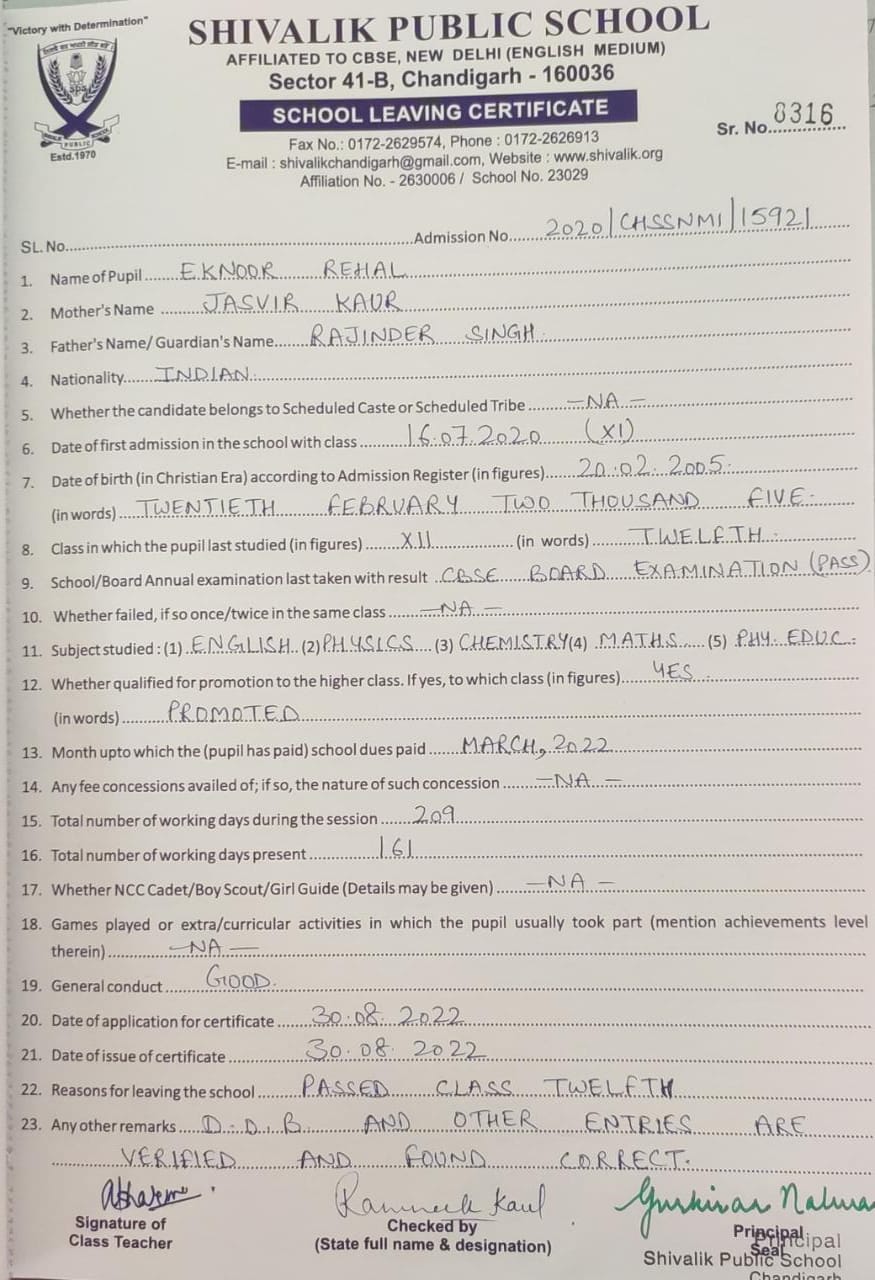 "Victory with Determination"
SHIVALIK PUBLIC SCHOOL
AFFILIATED TO CBSE, NEW DELHI (ENGLISH MEDIUM)
Sector 41-B, Chandigarh - 160036
SCHOOL LEAVING CERTIFICATE
Sr. No. 8316
PUBLIC SCHOOL
Estd.1970
Fax No.: 0172-2629574, Phone : 0172-2626913
E-mail : shivalikchandigarh@gmail.com, Website : www.shivalik.org
Affiliation No. - 2630006 / School No. 23029
SL. No. Admission No. 2020/CHSSNMI/15921
1. Name of Pupil EKNOOR REHAL
2. Mother's Name JASVIR KAUR
3. Father's Name/ Guardian's Name RAJINDER SINGH
4. Nationality INDIAN
5. Whether the candidate belongs to Scheduled Caste or Scheduled Tribe -NA-
6. Date of first admission in the school with class 16.07.2020 (XI)
7. Date of birth (in Christian Era) according to Admission Register (in figures) 20.02.2005
(in words) TWENTIETH FEBRUARY TWO THOUSAND FIVE
8. Class in which the pupil last studied (in figures) XII (in words) TWELFTH
9. School/Board Annual examination last taken with result CBSE BOARD EXAMINATION (PASS)
10. Whether failed, if so once/twice in the same class -NA-
11. Subject studied : (1) ENGLISH (2) PHYSICS (3) CHEMISTRY (4) MATHS (5) PHY. EDUC.
12. Whether qualified for promotion to the higher class. If yes, to which class (in figures) YES
(in words) PROMOTED
13. Month upto which the (pupil has paid) school dues paid MARCH, 2022
14. Any fee concessions availed of; if so, the nature of such concession -NA-
15. Total number of working days during the session 209
16. Total number of working days present 161
17. Whether NCC Cadet/Boy Scout/Girl Guide (Details may be given) -NA-
18. Games played or extra/curricular activities in which the pupil usually took part (mention achievements level
therein) -NA-
19. General conduct GOOD
20. Date of application for certificate 30.08.2022
21. Date of issue of certificate 30.08.2022
22. Reasons for leaving the school PASSED CLASS TWELFTH
23. Any other remarks D.O.B AND OTHER ENTRIES ARE
VERIFIED AND FOUND CORRECT.
Ramneek Kaul
Signature of
Class Teacher
Checked by
(State full name & designation)
Principal
Seal
Principal
Shivalik Public School
Chandigarh